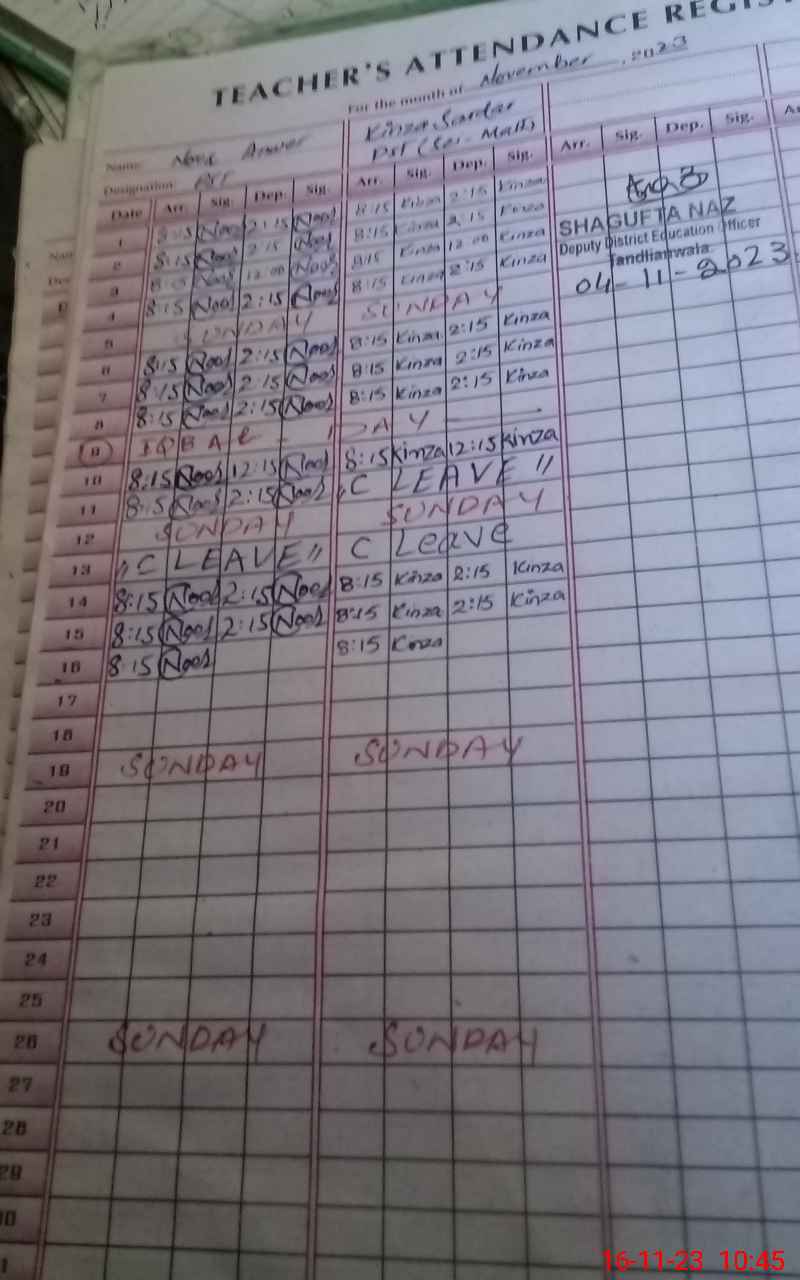 TEACHER'S ATTENDANCE REGIS
For the month of November, 2023
Name Kinza Sardar
Designation PST (Sci. Math)
Date Arr. Sig. Dep. Sig. Arr. Sig. Dep. Sig. Arr. Sig. Dep. Sig.
1 8:15 Noor 2:15 Noor 8:15 Kinza 2:15 Kinza
2 8:15 Noor 2:15 Noor 8:15 Kinza 2:15 Kinza
3 8:15 Noor 12:00 Noor 8:15 Kinza 12:00 Kinza
4 8:15 Noor 2:15 Noor 8:15 Kinza 2:15 Kinza
SHAGUFTA NAZ
Deputy District Education Officer
Tandlianwala
04-11-2023
5 SUNDAY SUNDAY
6 8:15 Noor 2:15 Noor 8:15 Kinza 2:15 Kinza
7 8:15 Noor 2:15 Noor 8:15 Kinza 2:15 Kinza
8 8:15 Noor 2:15 Noor 8:15 Kinza 2:15 Kinza
9 IQBAL - DAY
10 8:15 Noor 12:15 Noor 8:15 Kinza 12:15 Kinza
11 8:15 Noor 2:15 Noor "C LEAVE"
12 SUNDAY SUNDAY
13 "C LEAVE" C Leave
14 8:15 Noor 2:15 Noor 8:15 Kinza 2:15 Kinza
15 8:15 Noor 2:15 Noor 8:15 Kinza 2:15 Kinza
16 8:15 Noor 8:15 Kinza
17
18
19 SUNDAY SUNDAY
20
21
22
23
24
25
26 SUNDAY SUNDAY
27
28
29
16-11-23 10:45